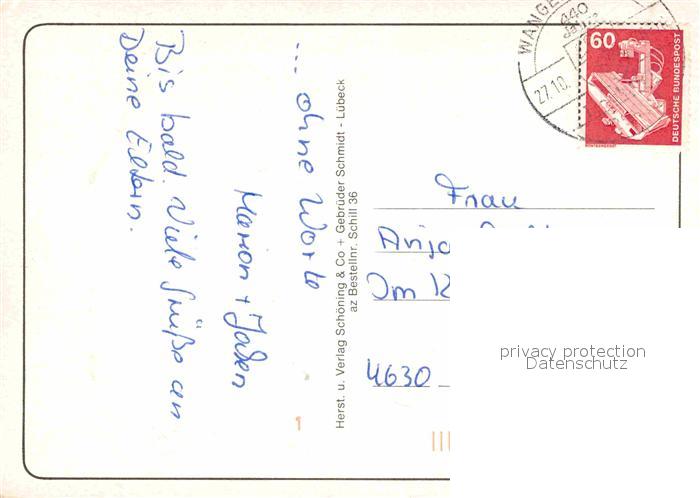 ... ohne Worte
Marion + Jochen
Bis bald. Viele Grüße an
Deine Eltern.
Herst. u. Verlag Schöning & Co + Gebrüder Schmidt - Lübeck
az Bestellnr. Schill 36
1
WANGE
440
27.10.
60
DEUTSCHE BUNDESPOST
Frau
Anja
Im K
4630
privacy protection
Datenschutz